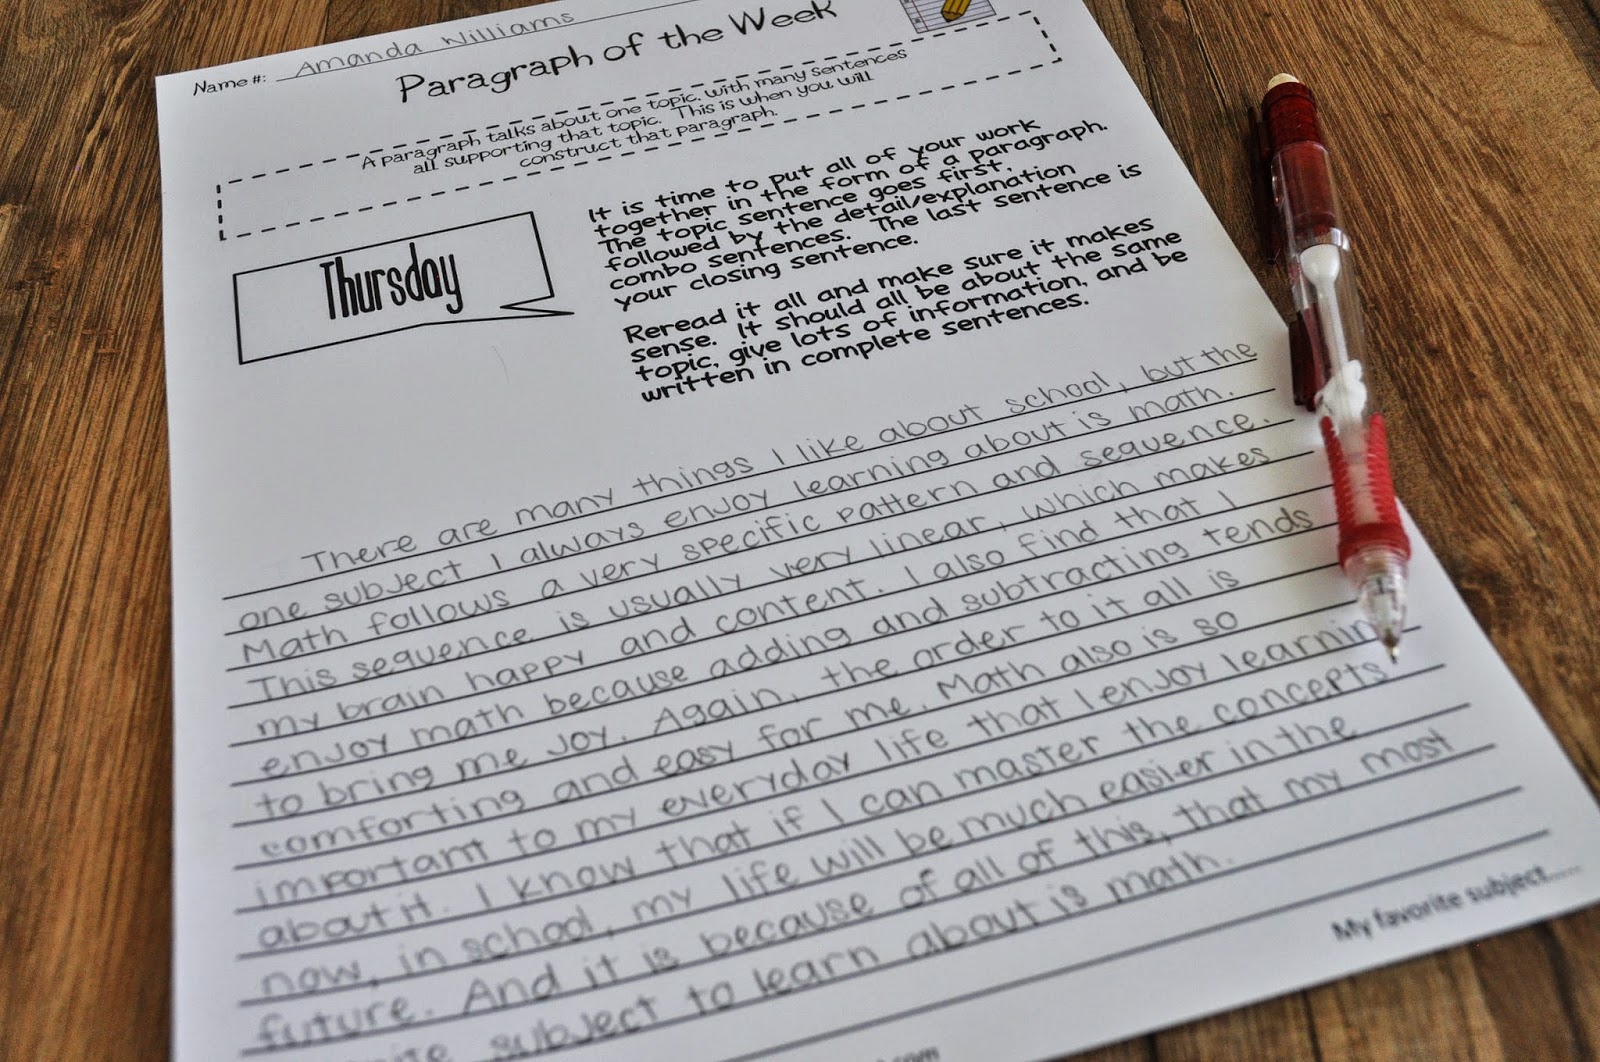 Name #: Amanda Williams
Paragraph of the Week
A paragraph talks about one topic, with many sentences
all supporting that topic. This is when you will
construct that paragraph.
Thursday
It is time to put all of your work
together in the form of a paragraph.
The topic sentence goes first,
followed by the detail/explanation
combo sentences. The last sentence is
your closing sentence.
Reread it all and make sure it makes
sense. It should all be about the same
topic, give lots of information, and be
written in complete sentences.
There are many things I like about school, but the
one subject I always enjoy learning about is math.
Math follows a very specific pattern and sequence.
This sequence is usually very linear, which makes
my brain happy and content. I also find that I
enjoy math because adding and subtracting tends
to bring me joy. Again, the order to it all is
comforting and easy for me. Math also is so
important to my everyday life that I enjoy learnin
about it. I know that if I can master the concepts
now, in school, my life will be much easier in the
future. And it is because of all of this, that my most
subject to learn about is math.
My favorite subject.....